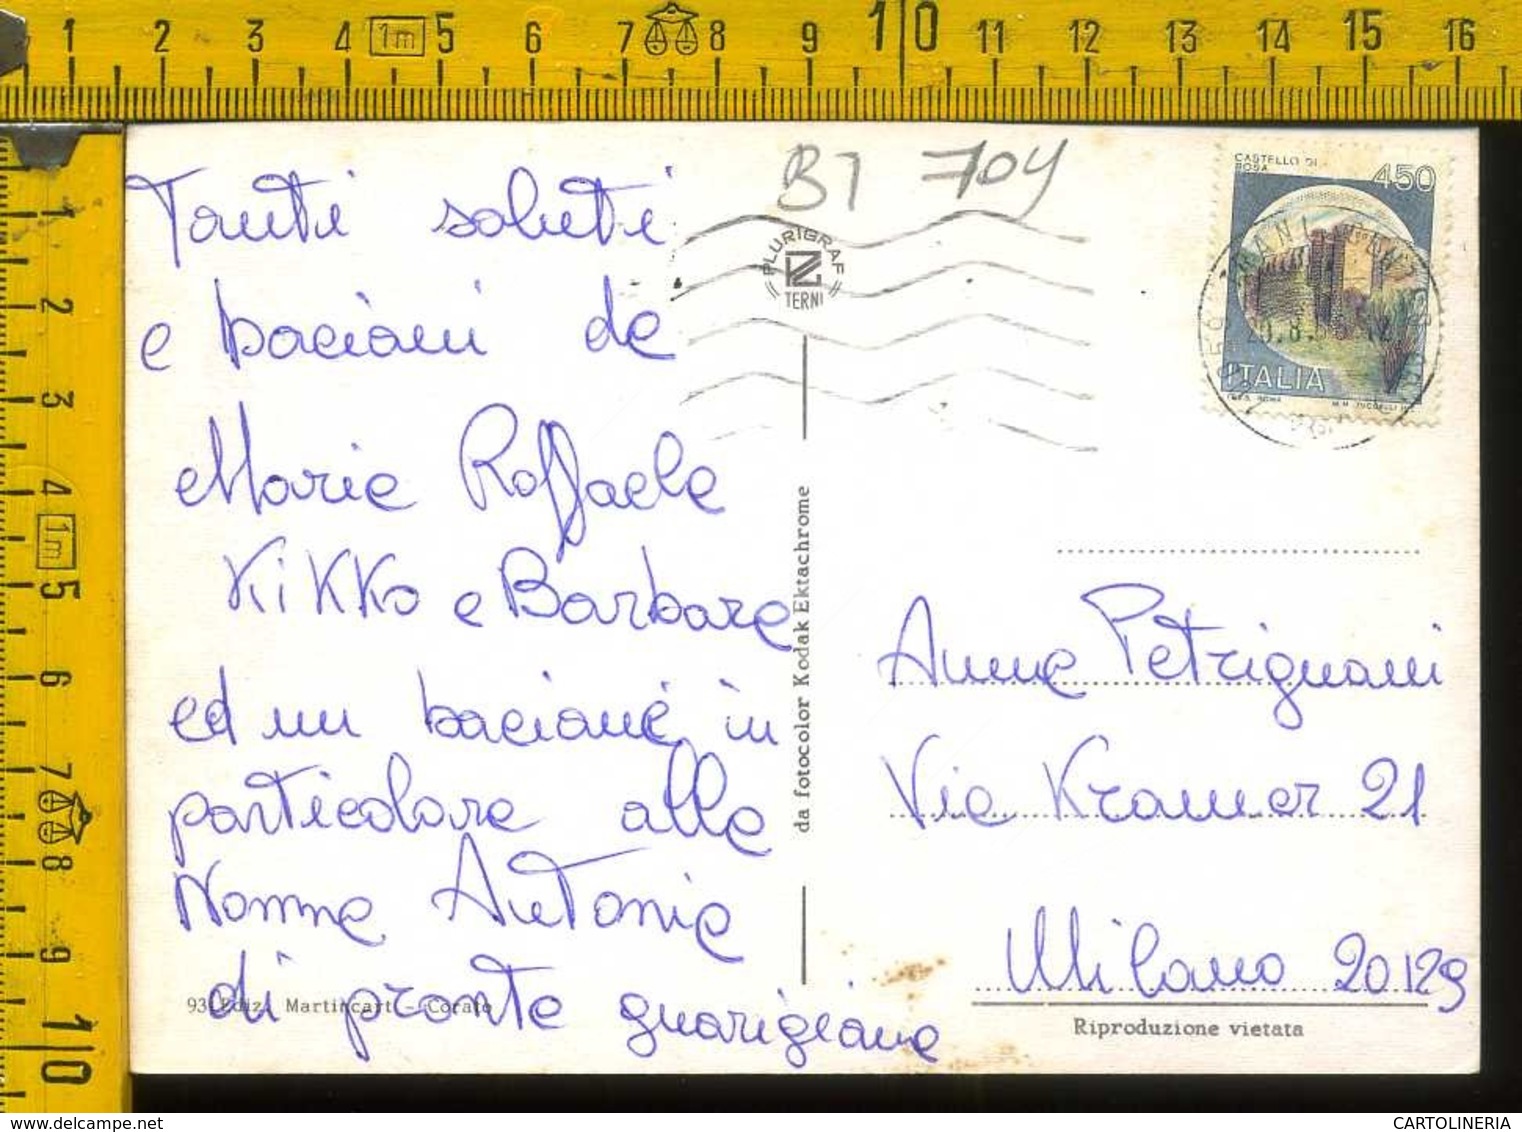 1 2 3 4 1m 5 6 7 8 9 10 11 12 13 14 15 16
1 2 3 4 1m 5 6 7 8 9 10
BT 704
CASTELLO DI
BOSA
450
ITALIA
PLURIGRAF
TERNI
Tanti saluti
e bacioni da
Maria Raffaele
KiKKo e Barbara
ed un bacione in
particolare alla
Nonna Antonia
di pronta guarigione
93 Ediz. Martincart - Corato
da fotocolor Kodak Ektachrome
Anna Petrignani
Via Kramer 21
Milano 20129
Riproduzione vietata
www.delcampe.net
CARTOLINERIA